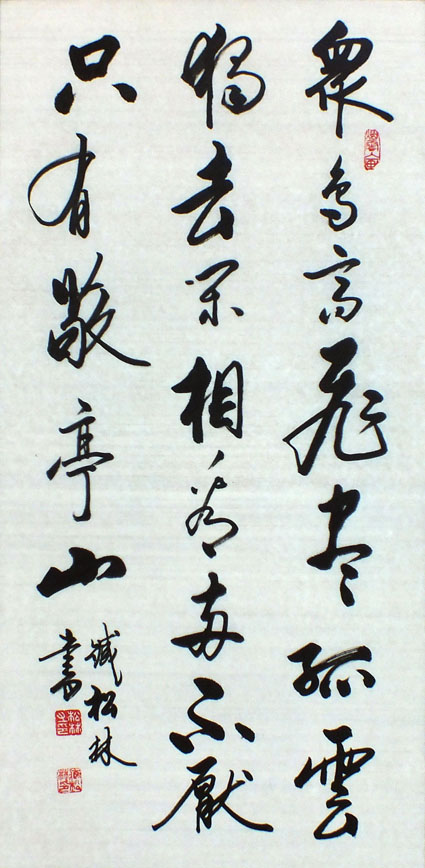 衆鳥高飛盡孤雲
獨去閑相看兩不厭
只有敬亭山
臧松林
書